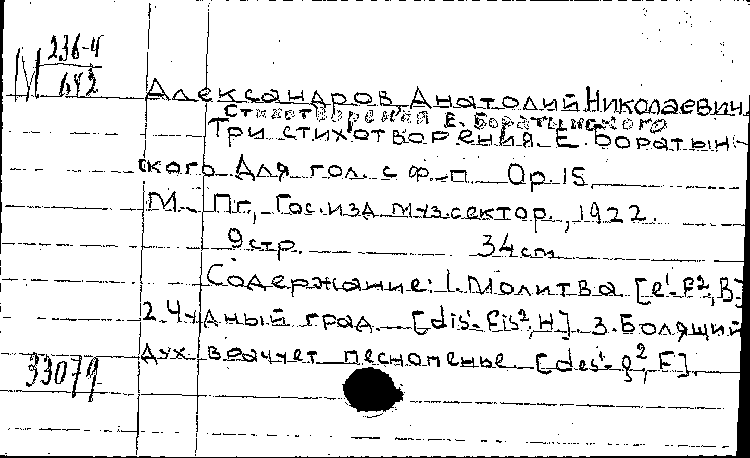 М 236-4
642
Александров, Анатолий Николаевич.
Стихотворения Е. Боратынского
Три стихотворения Е. Боратын-
ского Для гол. с ф-п Ор. 15.
М. Пг., Гос. изд муз. сектор, 1922.
9 стр. 34 см
Содержание: 1. Молитва [e¹-f², B]
2. Чудный град [dis¹-fis², H]. 3. Болящий
дух врачует песнопенье. [des¹-g², F].
33079